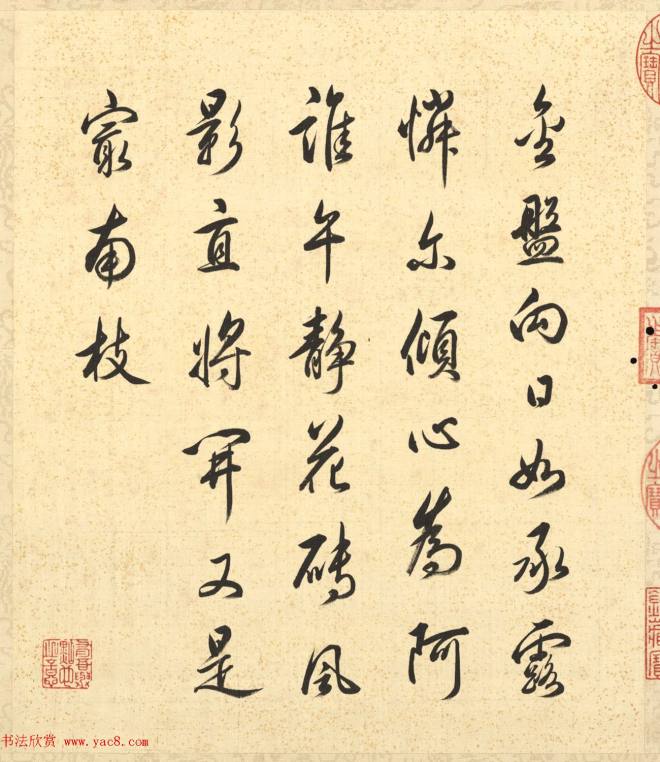 金盤向日如承露
憐尔傾心為阿
誰午靜花磚風
影直將開又是
㝡南枝
书法欣赏 www.yac8.com